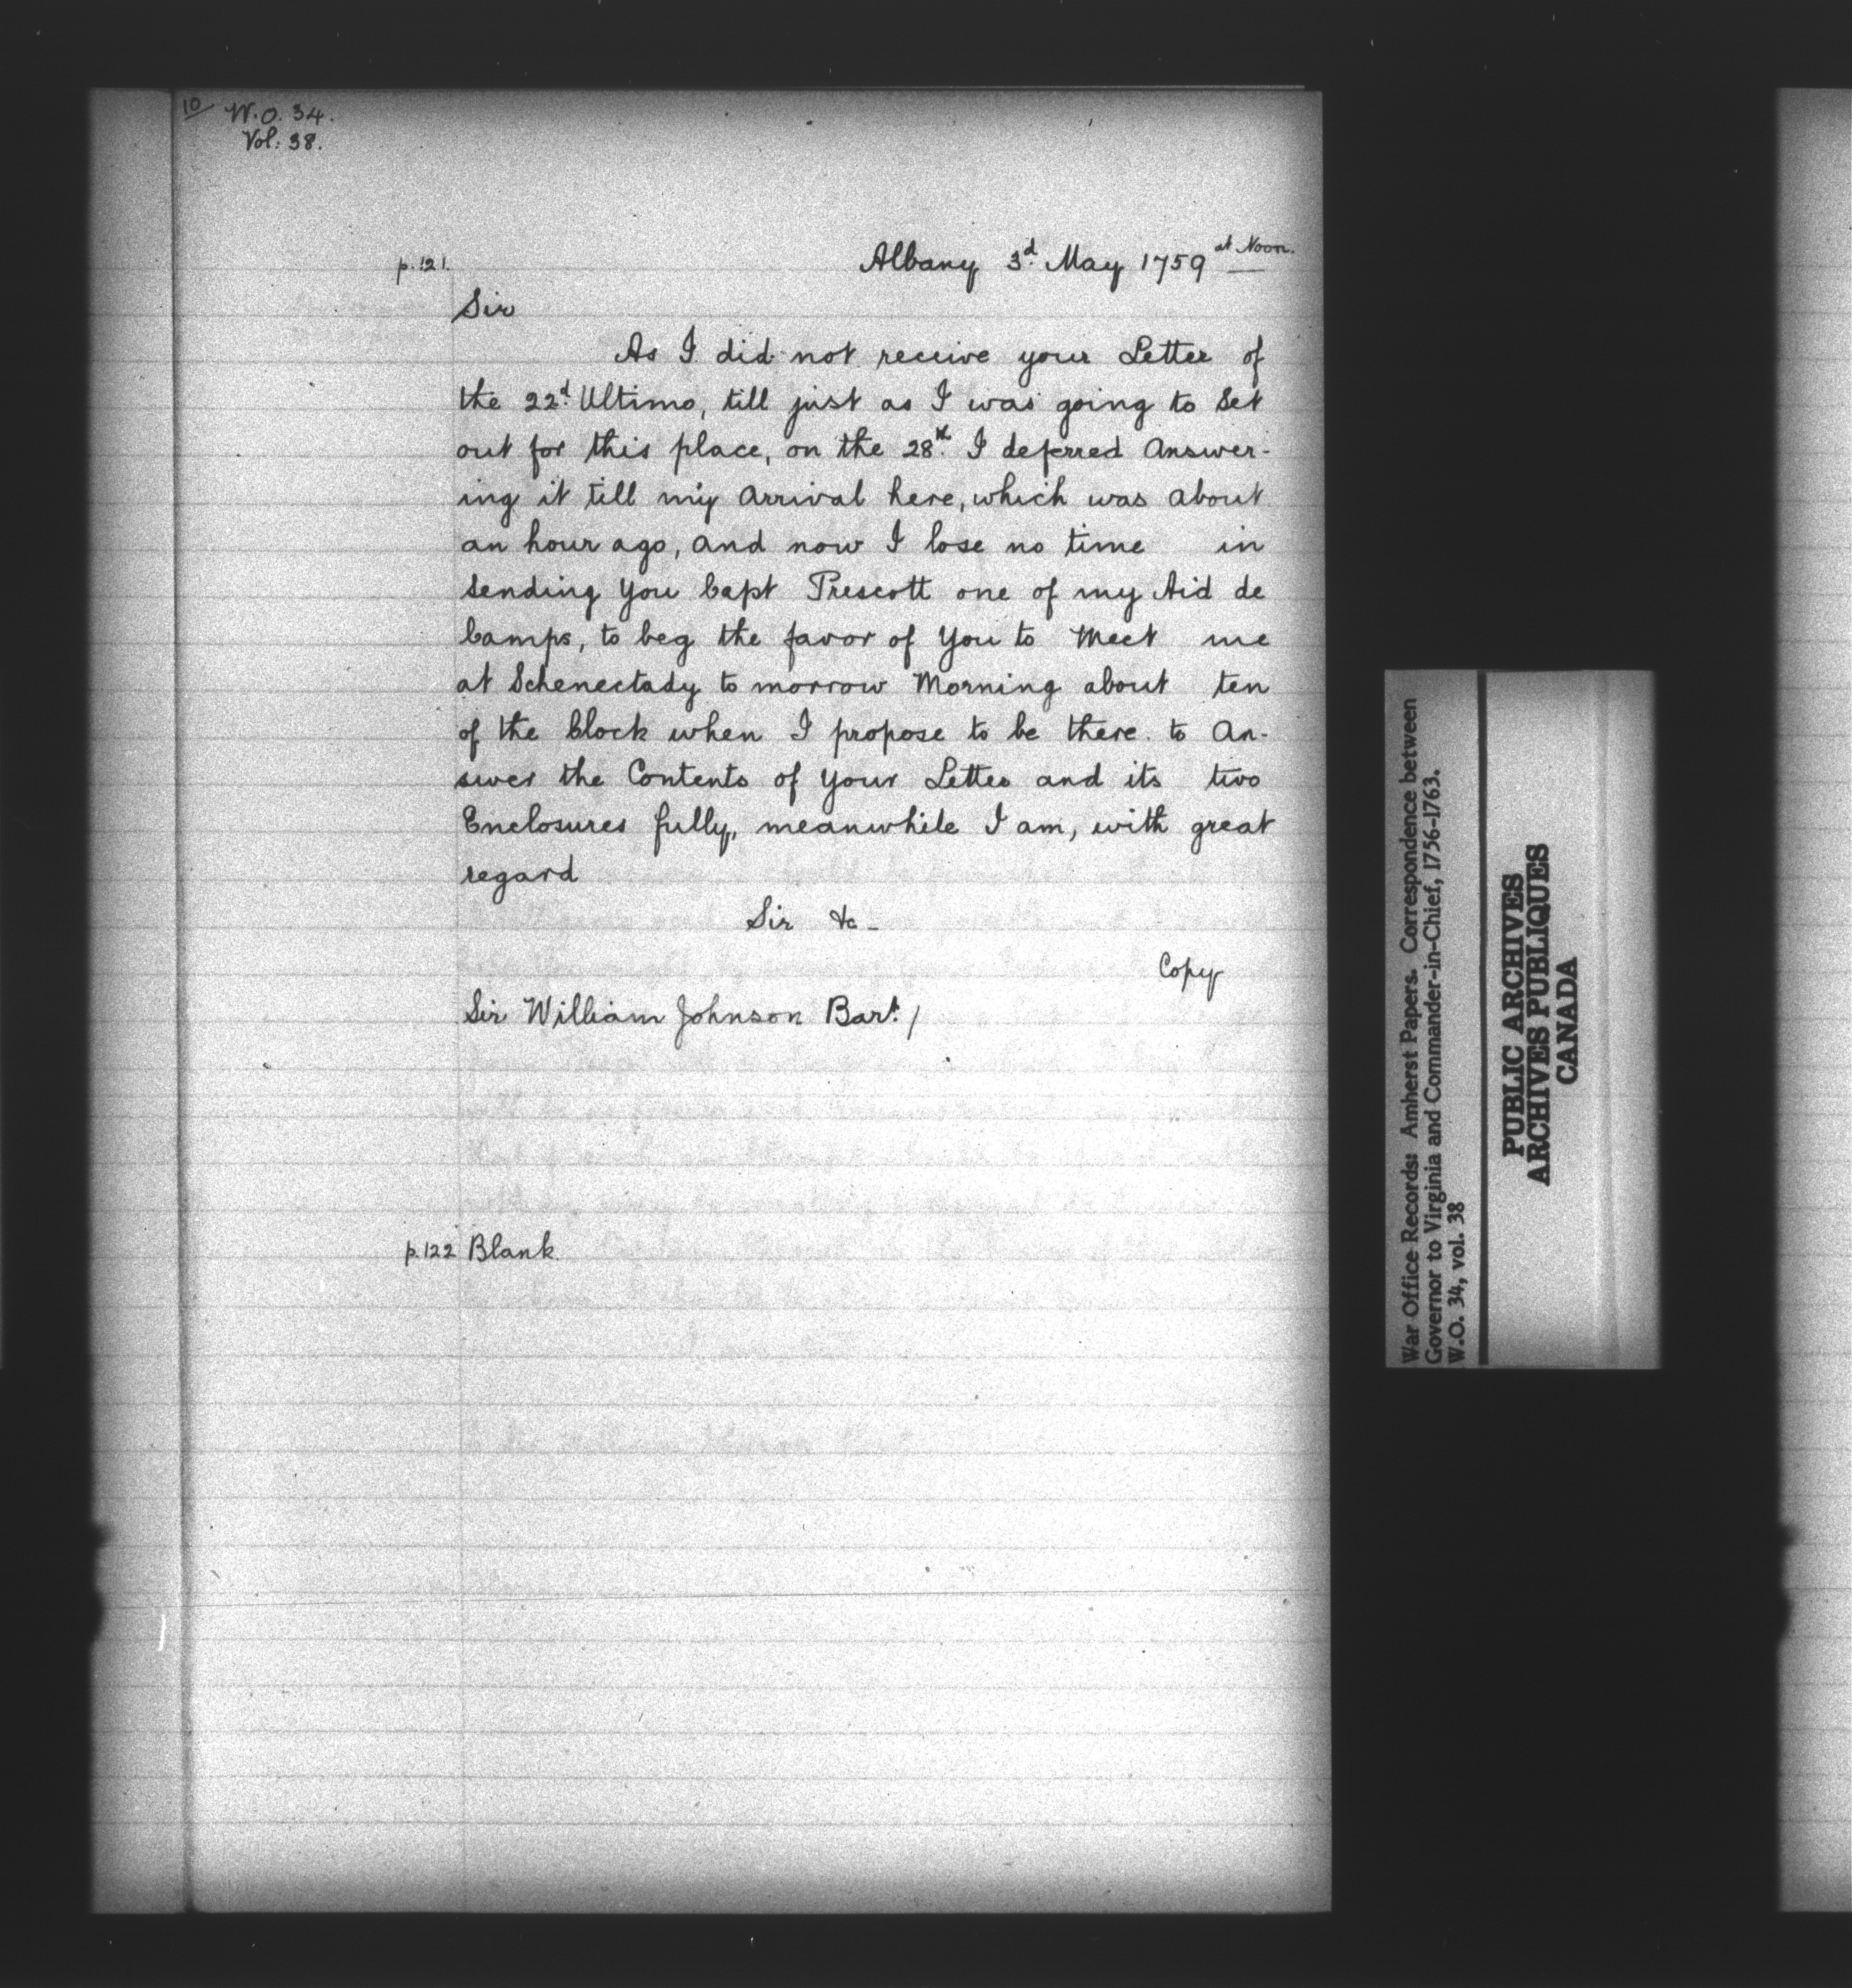 10/ W.O. 34.
Vol: 38.
p.121. Albany 3d. May 1759 at Noon.
Sir
As I did not receive your Letter of
the 22d. Ultimo, till just as I was going to Set
out for this place, on the 28th. I deferred Answer-
ing it till my Arrival here, which was About
an hour ago, and now I lose no time in
Sending You Capt Prescott one of my Aid de
Camps, to beg the favor of You to Meet me
at Schenectady to morrow Morning about ten
of the Clock when I propose to be there. to An-
swer the Contents of Your Letter and its two
Enclosures fully, meanwhile I am, with great
regard
Sir &c -
Copy
Sir William Johnson Bart. /
p.122 Blank.
War Office Records: Amherst Papers. Correspondence between
Governor to Virginia and Commander-in-Chief, 1756-1763.
W.O. 34, vol. 38
PUBLIC ARCHIVES
ARCHIVES PUBLIQUES
CANADA